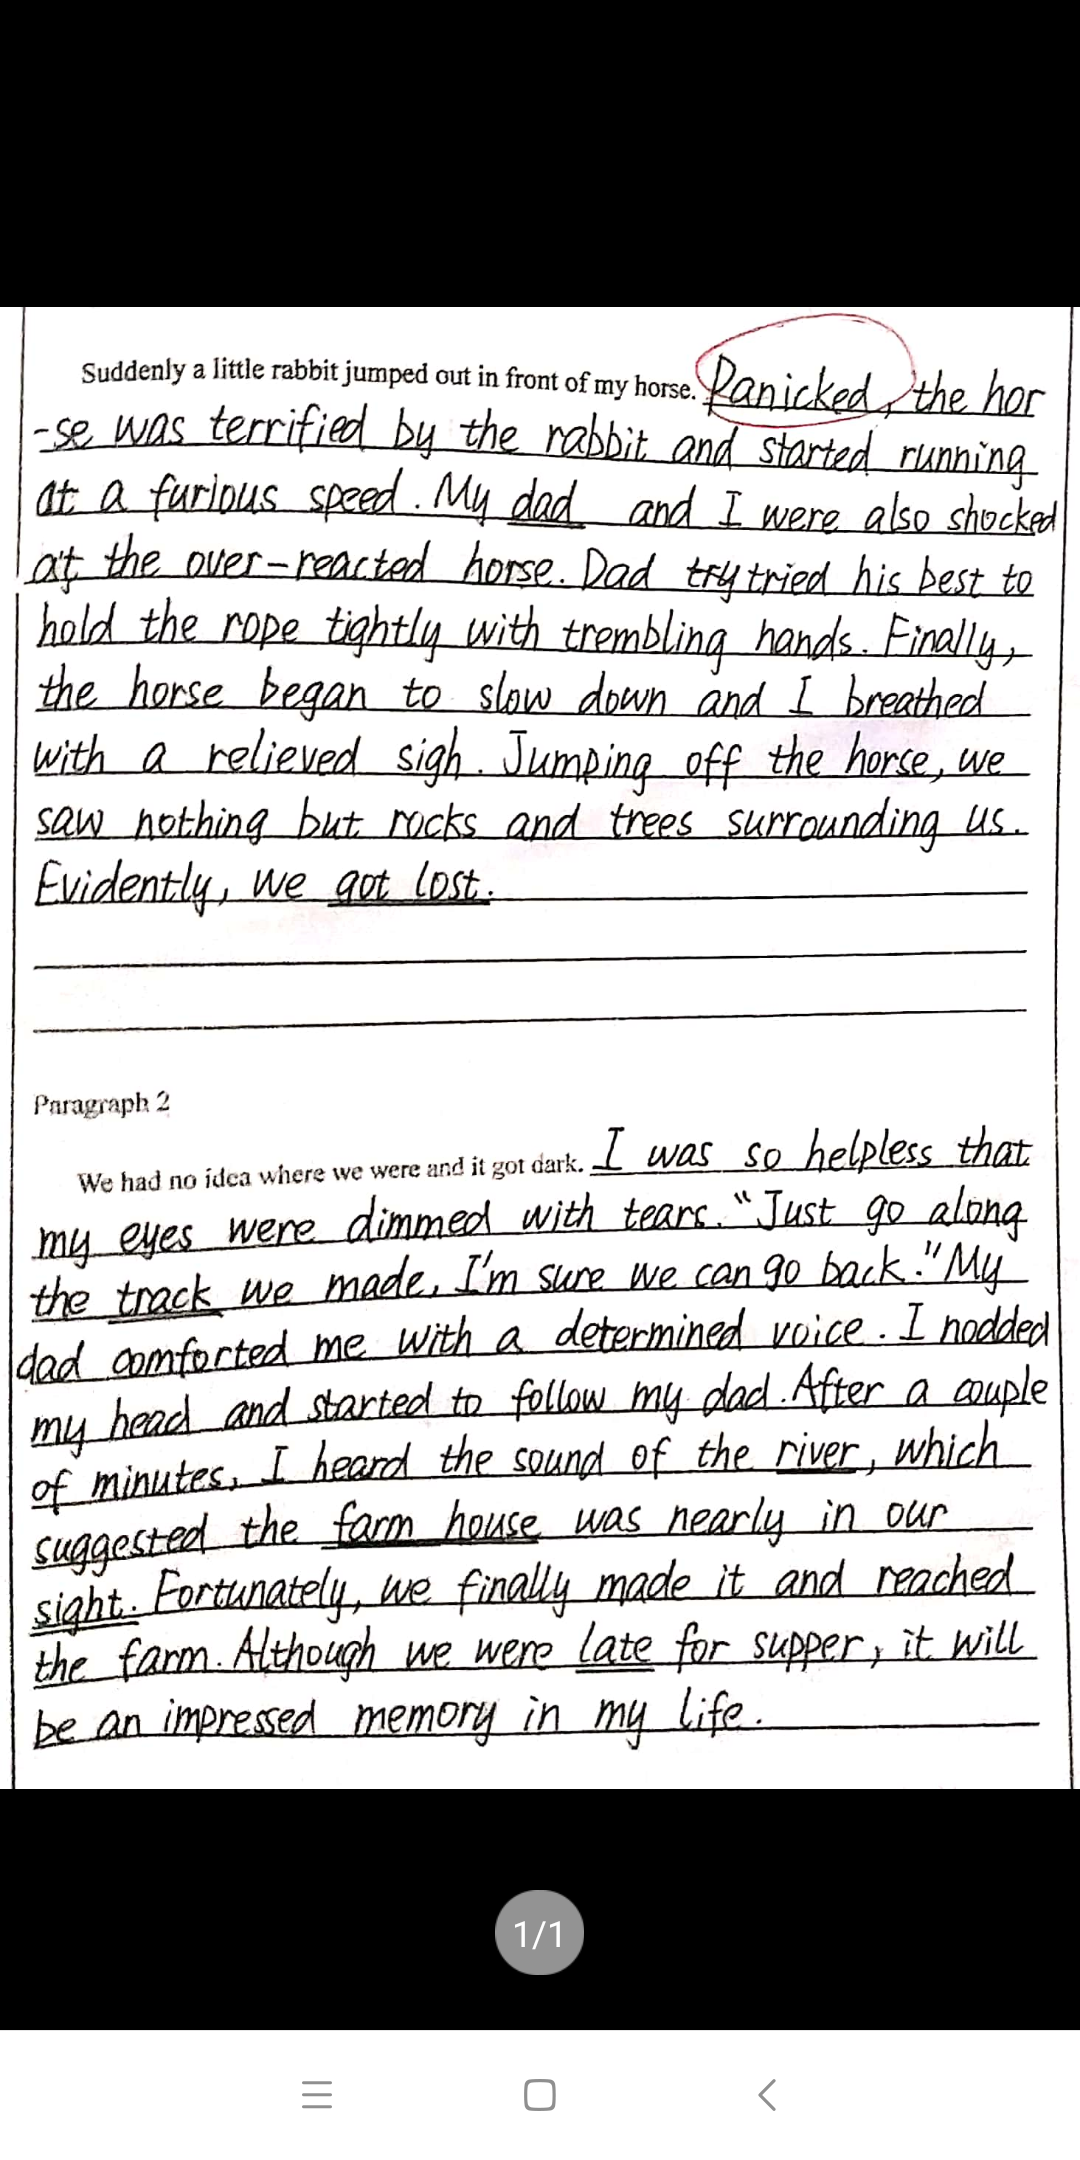 Suddenly a little rabbit jumped out in front of my horse. Panicked, the hor
-se was terrified by the rabbit and started running
at a furious speed. My dad and I were also shocked
at the over-reacted horse. Dad try tried his best to
hold the rope tightly with trembling hands. Finally,
the horse began to slow down and I breathed
with a relieved sigh. Jumping off the horse, we
saw nothing but rocks and trees surrounding us.
Evidently, we got lost.
Paragraph 2
We had no idea where we were and it got dark. I was so helpless that
my eyes were dimmed with tears. "Just go along
the track we made, I'm sure we can go back." My
dad comforted me with a determined voice. I nodded
my head and started to follow my dad. After a couple
of minutes, I heard the sound of the river, which
suggested the farm house was nearly in our
sight. Fortunately, we finally made it and reached
the farm. Although we were late for supper, it will
be an impressed memory in my life.
1/1